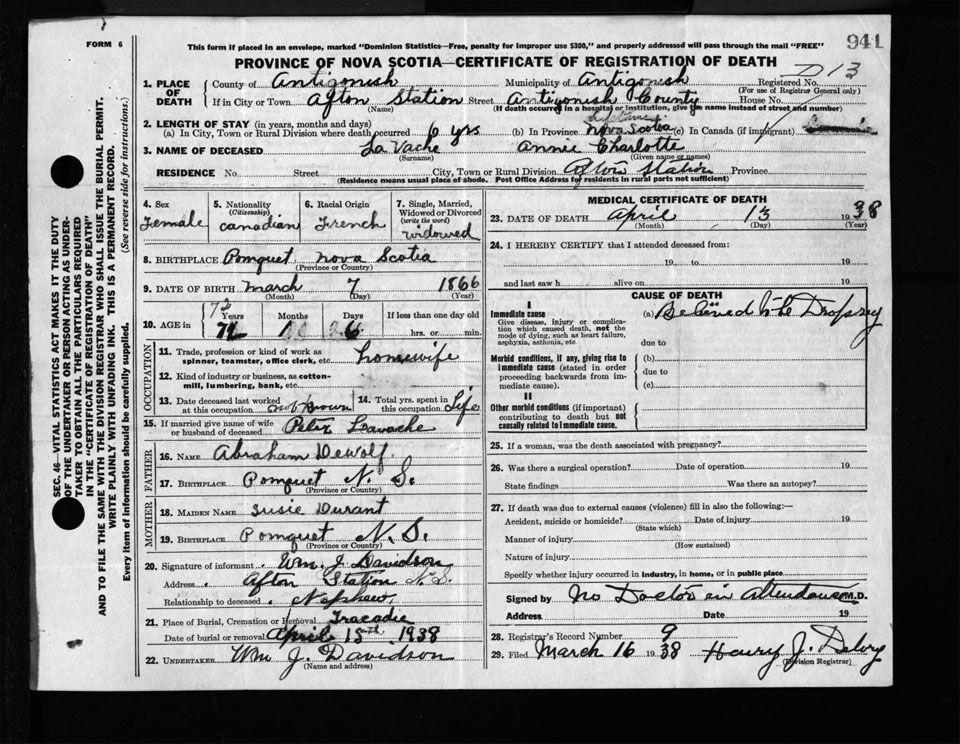 FORM 6
This form if placed in an envelope, marked "Dominion Statistics—Free, penalty for improper use $300," and properly addressed will pass through the mail "FREE"
941
PROVINCE OF NOVA SCOTIA—CERTIFICATE OF REGISTRATION OF DEATH
713
1. PLACE OF DEATH County of Antigonish Municipality of Antigonish Registered No.
(For use of Registrar General only)
If in City or Town Afton Station Street Antigonish County House No.
(Name) (If death occurred in a hospital or institution, give the name instead of street and number)
2. LENGTH OF STAY (in years, months and days)
(a) In City, Town or Rural Division where death occurred 6 yrs (b) In Province Nova Scotia (c) In Canada (if immigrant)
3. NAME OF DECEASED La Vache Annie Charlotte
(Surname) (Given name or names)
RESIDENCE No. Street City, Town or Rural Division Afton Station Province
(Residence means usual place of abode. Post Office Address for residents in rural parts not sufficient)
4. Sex Female
5. Nationality (Citizenship) Canadian
6. Racial Origin French
7. Single, Married, Widowed or Divorced (write the word) widowed
8. BIRTHPLACE Pomquet Nova Scotia
(Province or Country)
9. DATE OF BIRTH March 7 1866
(Month) (Day) (Year)
10. AGE in 72 Years Months Days If less than one day old
hrs. or min.
OCCUPATION
11. Trade, profession or kind of work as spinner, teamster, office clerk, etc. housewife
12. Kind of industry or business, as cotton-mill, lumbering, bank, etc.
13. Date deceased last worked at this occupation not known
14. Total yrs. spent in this occupation Life
15. If married give name of wife or husband of deceased Peter Lavache
FATHER
16. NAME Abraham Dewolf
17. BIRTHPLACE Pomquet N. S.
(Province or Country)
MOTHER
18. MAIDEN NAME Susie Durant
19. BIRTHPLACE Pomquet N. S.
(Province or Country)
20. Signature of informant Wm. J. Davidson
Address Afton Station N. S.
Relationship to deceased Nephew
21. Place of Burial, Cremation or Removal Tracadie
Date of burial or removal April 15th 1938
22. UNDERTAKER Wm J. Davidson
(Name and address)
MEDICAL CERTIFICATE OF DEATH
23. DATE OF DEATH April 13 1938
(Month) (Day) (Year)
24. I HEREBY CERTIFY that I attended deceased from:
19 to 19
and last saw h alive on 19
CAUSE OF DEATH
I
Immediate cause (a) Believed to be Dropsey
Give disease, injury or complication which caused death, not the mode of dying, such as heart failure, asphyxia, asthenia, etc.
due to
Morbid conditions, if any, giving rise to immediate cause (stated in order proceeding backwards from immediate cause).
(b)
due to
(c)
II
Other morbid conditions (if important) contributing to death but not causally related to immediate cause.
25. If a woman, was the death associated with pregnancy?
26. Was there a surgical operation? Date of operation 19
State findings Was there an autopsy?
27. If death was due to external causes (violence) fill in also the following:—
Accident, suicide or homicide? Date of injury 19
(State which)
Manner of injury
(How sustained)
Nature of injury
Specify whether injury occurred in industry, in home, or in public place
Signed by No Doctor in Attendance M.D.
Address Date 19
28. Registrar's Record Number 9
29. Filed March 16 1938 Henry J.
(Division Registrar)
SEC. 46—VITAL STATISTICS ACT MAKES IT THE DUTY
OF THE UNDERTAKER OR PERSON ACTING AS UNDER-
TAKER TO OBTAIN ALL THE PARTICULARS REQUIRED
IN THE "CERTIFICATE OF REGISTRATION OF DEATH"
AND TO FILE THE SAME WITH THE DIVISION REGISTRAR WHO SHALL ISSUE THE BURIAL PERMIT.
WRITE PLAINLY WITH UNFADING INK. THIS IS A PERMANENT RECORD.
Every item of information should be carefully supplied. (See reverse side for instructions.)